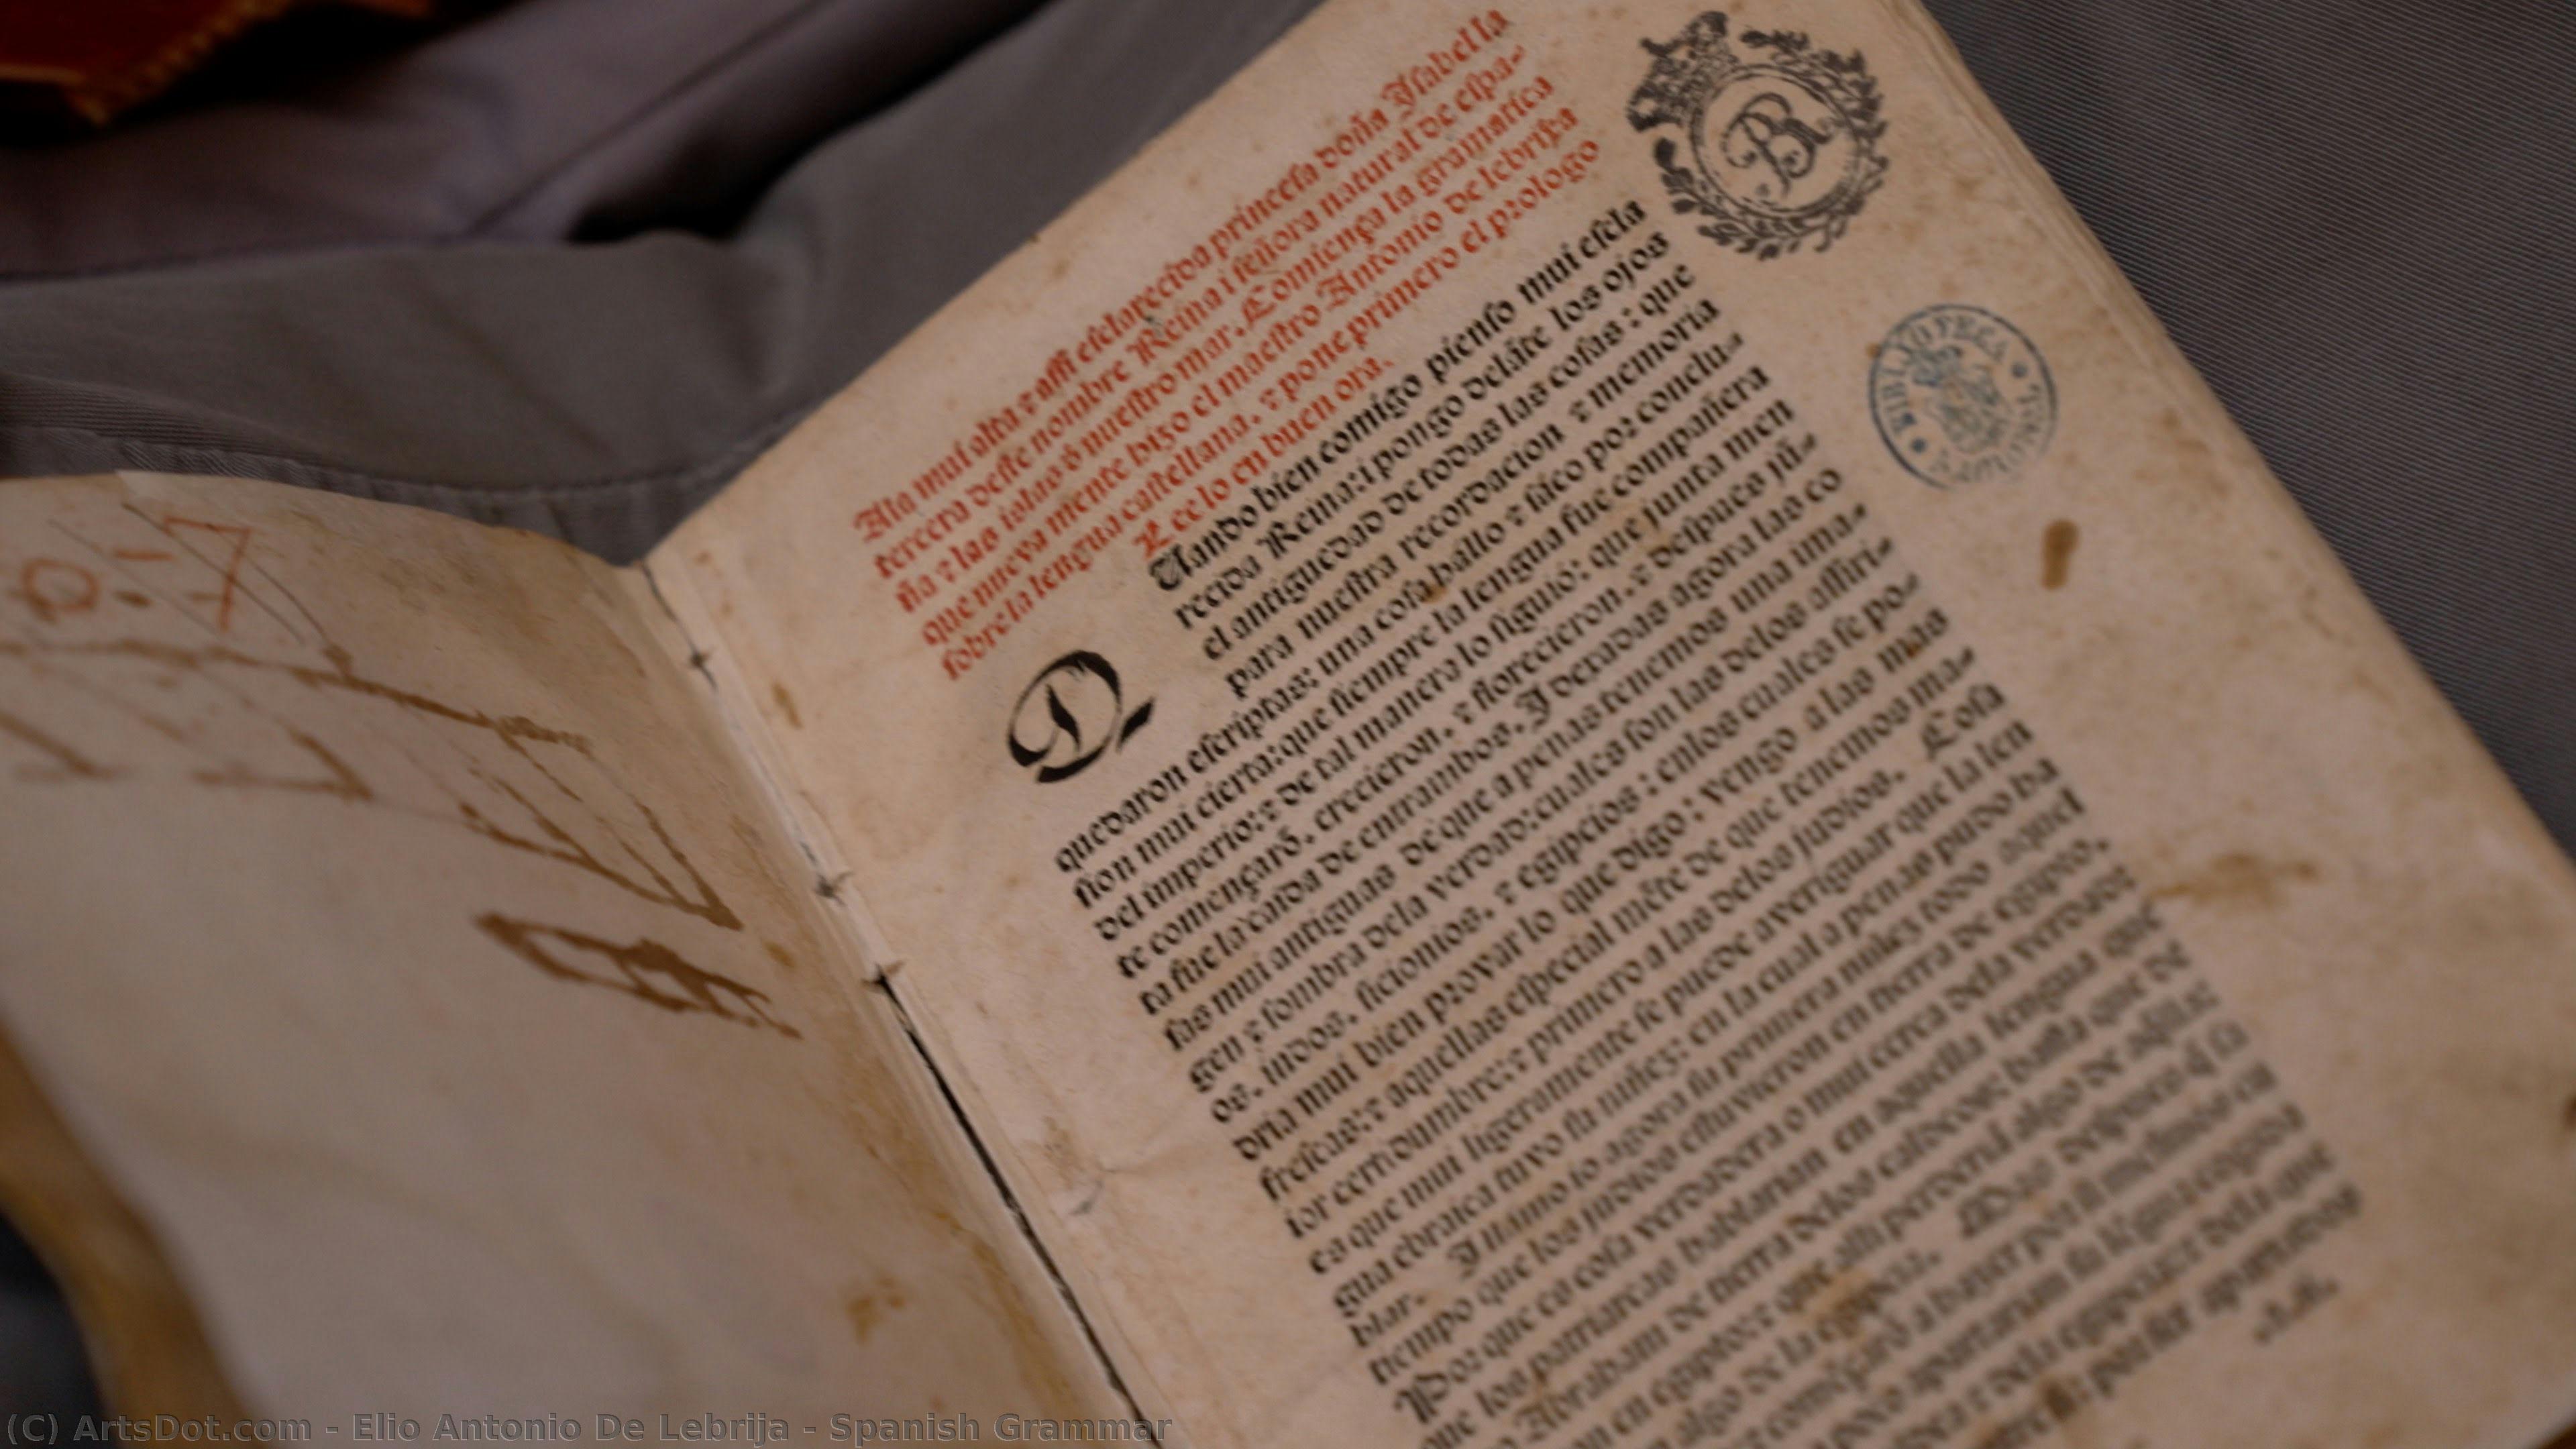 o-7
Ala mui alta ⁊ assi esclarecida princesa doña Isabel la
tercera deste nombre Reina i señora natural de espa-
ña ⁊ las islas đ nuestro mar. Comiença la gramatica
que nueva mente hizo el maestro Antonio de lebrixa
sobre la lengua castellana. ⁊ pone primero el prologo
Lee lo en buen ora.
QUando bien comigo pienso mui escla
recida Reina: i pongo delãte los ojos
el antiguedad de todas las cosas: que
para nuestra recordacion ⁊ memoria
quedaron escriptas: una cosa hallo ⁊ sáco por conclu-
sion mui cierta: que siempre la lengua fue compañera
del imperio: ⁊ de tal manera lo siguió: que junta men
te començarõ. crecieron. ⁊ florecieron. ⁊ despues jũ-
ta fue la caida de entrambos. I dexadas agora las co
sas mui antiguas de que a penas tenemos una ima-
gen ⁊ sombra dela verdad: cuales son las delos assiri-
os. indos. sicionios. ⁊ egipcios: enlos cuales se po-
dria mui bien provar lo que digo: vengo a las mas
frescas: ⁊ aquellas especial mẽte de que tenemos ma-
ior certidumbre: ⁊ primero a las delos judios. Cosa
es que mui ligeramente se puede averiguar que la len
gua ebraica tuvo su niñez: en la cual a penas pudo ha
blar. I llamo io agora su primera niñez todo aquel
tiempo que los judios estuvieron en tierra de egipto.
Por que es cosa verdadera o mui cerca dela verdad:
que los patriarcas hablarian en aquella lengua que
Abraham de tierra delos caldeos: hasta que de
en egipto: ⁊ que alli perderia algo de
algo de la egipcia. Mas despues
BR
BIBLIOTECA
(C) ArtsDot.com - Elio Antonio De Lebrija - Spanish Grammar